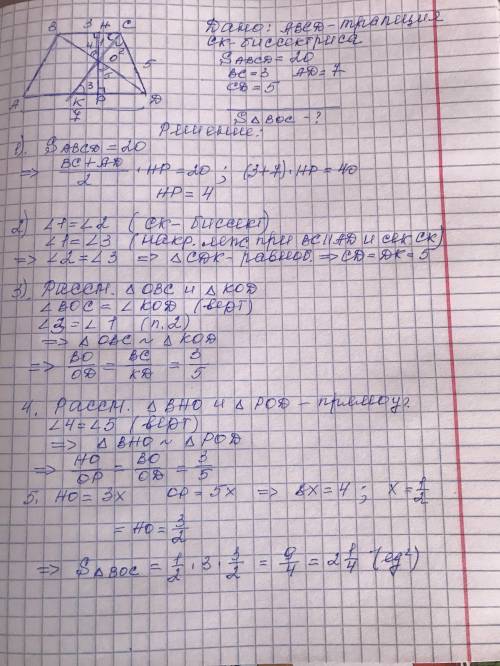 B 3 H C
4 1 2
O
5
5
3
A K P D
7
Дано: ABCD - трапеция
CK - биссектриса
S ABCD = 20
BC = 3 AD = 7
CD = 5
S△BOC - ?
Решение:
1). S ABCD = 20
=> BC + AD / 2 · HP = 20 ; (3+7) · HP = 40
HP = 4
2) ∠1 = ∠2 (CK - биссект)
∠1 = ∠3 (накр. леж при BC || AD и сек CK)
=> ∠2 = ∠3 => △CDK - равноб. => CD = DK = 5
3) Рассм. △OBC и △KOD
∠BOC = ∠KOD (верт)
∠3 = ∠1 (п. 2)
=> △OBC ~ △KOD
=> BO / OD = BC / KD = 3 / 5
4. Рассм. △BHO и △POD - прямоуг.
∠4 = ∠5 (верт)
=> △BHO ~ △POD
=> HO / OP = BO / OD = 3 / 5
5. HO = 3x OP = 5x => 8x = 4 ; x = 1/2
= HO = 3/2
=> S△BOC = 1/2 · 3 · 3/2 = 9/4 = 2 1/4 (ед²)